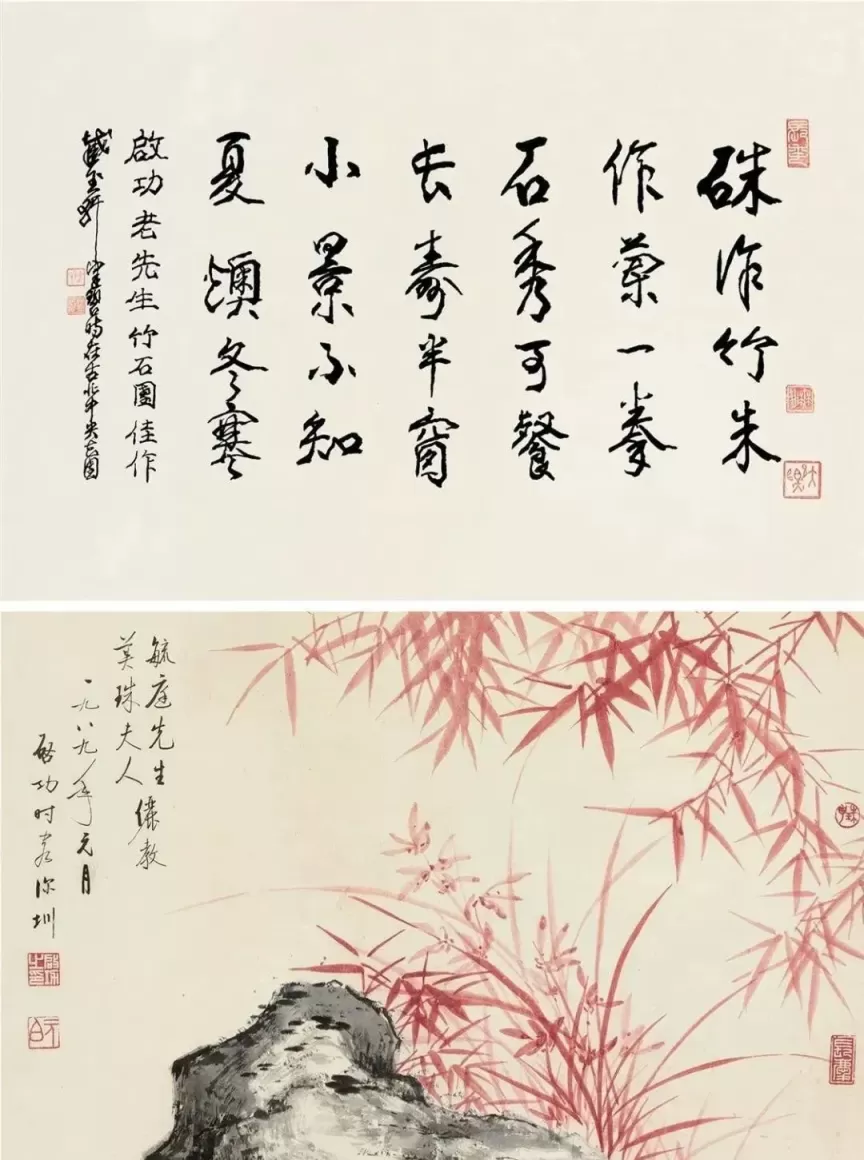 硃作竹朱
作蘭一拳
石秀可餐
长壽半窗
小景不知
夏燠冬寒
啟功老先生竹石圖佳作
毓庭先生
美珠夫人儷教
一九八九年元月
啓功时客深圳
啓功之印
元白